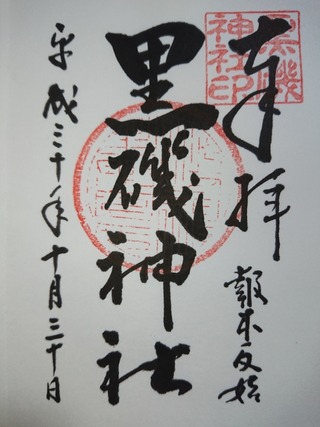 奉拝
報本反始
黒磯神社
平成三十年十月三十日
黒磯神社印